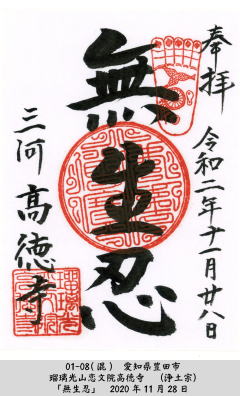 奉拝
令和二年十一月廿八日
無生忍
三河 高徳寺
01-08(混) 愛知県豊田市
瑠璃光山恋文院高徳寺 (浄土宗)
「無生忍」 2020年11月28日